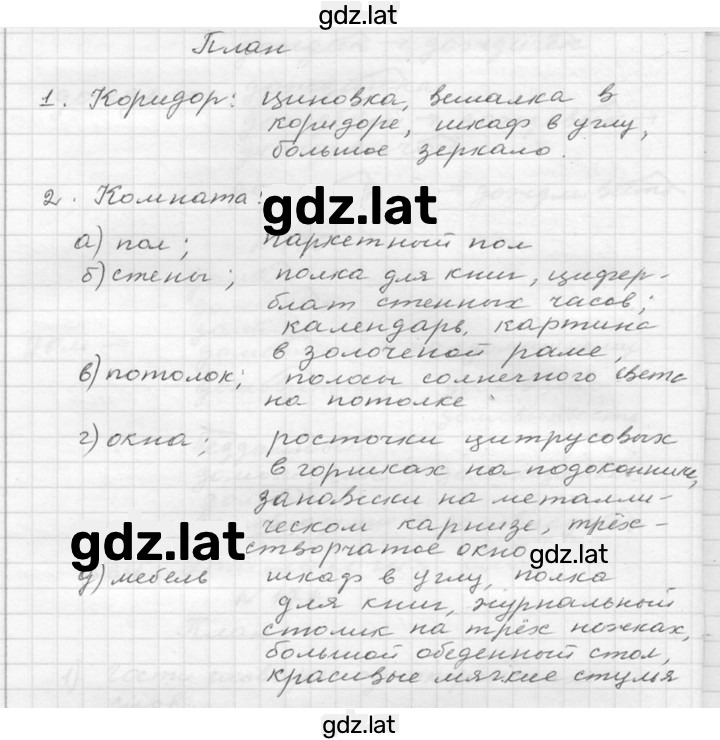 gdz.lat
План
1. Коридор: циновка, вешалка в
коридоре, шкаф в углу,
большое зеркало.
2. Комната:
gdz.lat
а) пол; паркетный пол
б) стены; полка для книг, цифер-
блат стенных часов;
календарь, картина
в золоченой раме,
в) потолок; полосы солнечного света
на потолке
г) окна; росточки цитрусовых
в горшках на подоконнике,
занавески на металли-
ческом карнизе, трёх-
gdz.lat
створчатое окно
gdz.lat
д) мебель шкаф в углу, полка
для книг, журнальный
столик на трёх ножках,
большой обеденный стол,
красивые мягкие стулья
gdz.lat